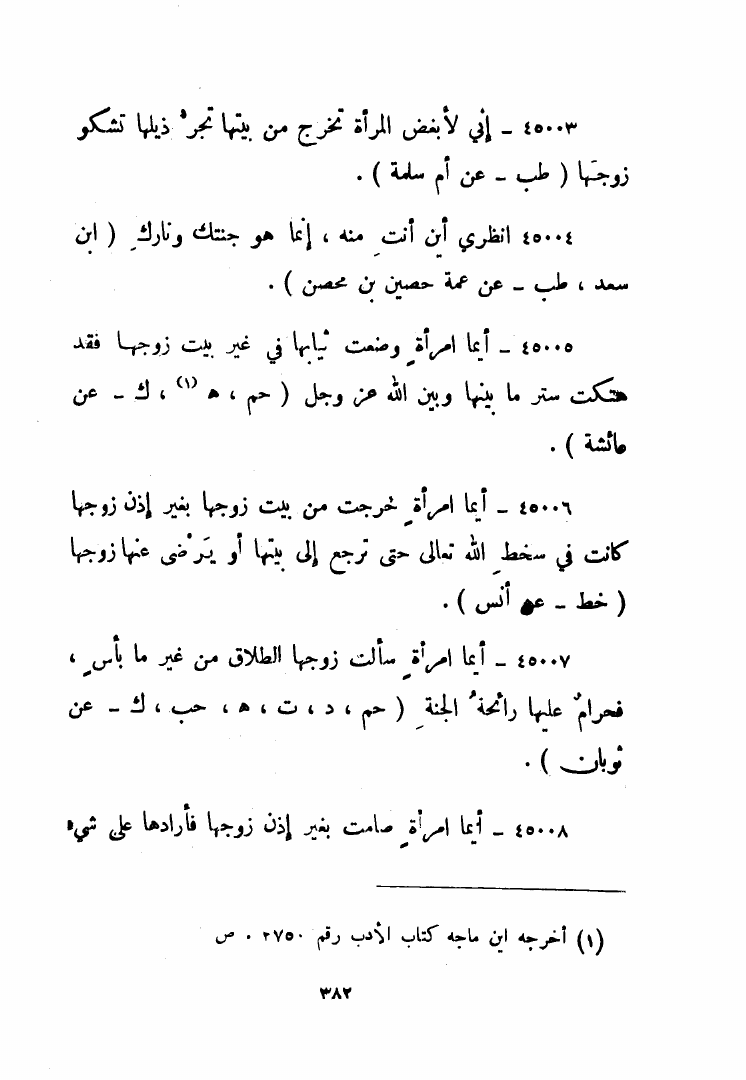 ٤٥٠٠٣ ــ إني لأبغض المرأة تخرج من بيتها تجرُّ ذيلها تشكو
زوجَها ( طب ــ عن أم سلمة ) .
٤٥٠٠٤ انظري أين أنتِ منه ، إنما هو جنتك وناركِ ( ابن
سعد ، طب ــ عن عمة حصين بن محصن ) .
٤٥٠٠٥ ــ أيما امرأةٍ وضعت ثيابها في غير بيت زوجها فقد
هتكت ستر ما بينها وبين الله عز وجل ( حم ، ه (١) ، ك ــ عن
عائشة ) .
٤٥٠٠٦ ــ أيما امرأةٍ خرجت من بيت زوجها بغير إذن زوجها
كانت في سخطِ الله تعالى حتى ترجع إلى بيتها أو يَرْضى عنها زوجها
( خط ــ عن أنس ) .
٤٥٠٠٧ ــ أيما امرأةٍ سألت زوجها الطلاق من غير ما بأسٍ ،
فحرامٌ عليها رائحةُ الجنةِ ( حم ، د ، ت ، ه ، حب ، ك ــ عن
ثوبان ) .
٤٥٠٠٨ ــ أيما امرأةٍ صامت بغير إذن زوجها فأرادها على شيء
(١) أخرجه ابن ماجه كتاب الأدب رقم ٢٧٥٠ . ص
٣٨٢